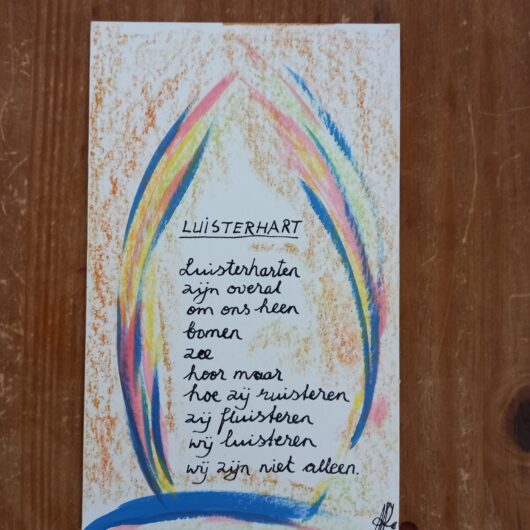 LUISTERHART
Luisterharten
zijn overal
om ons heen
bomen
zee
hoor maar
hoe zij ruisteren
zij fluisteren
wij luisteren
wij zijn niet alleen.